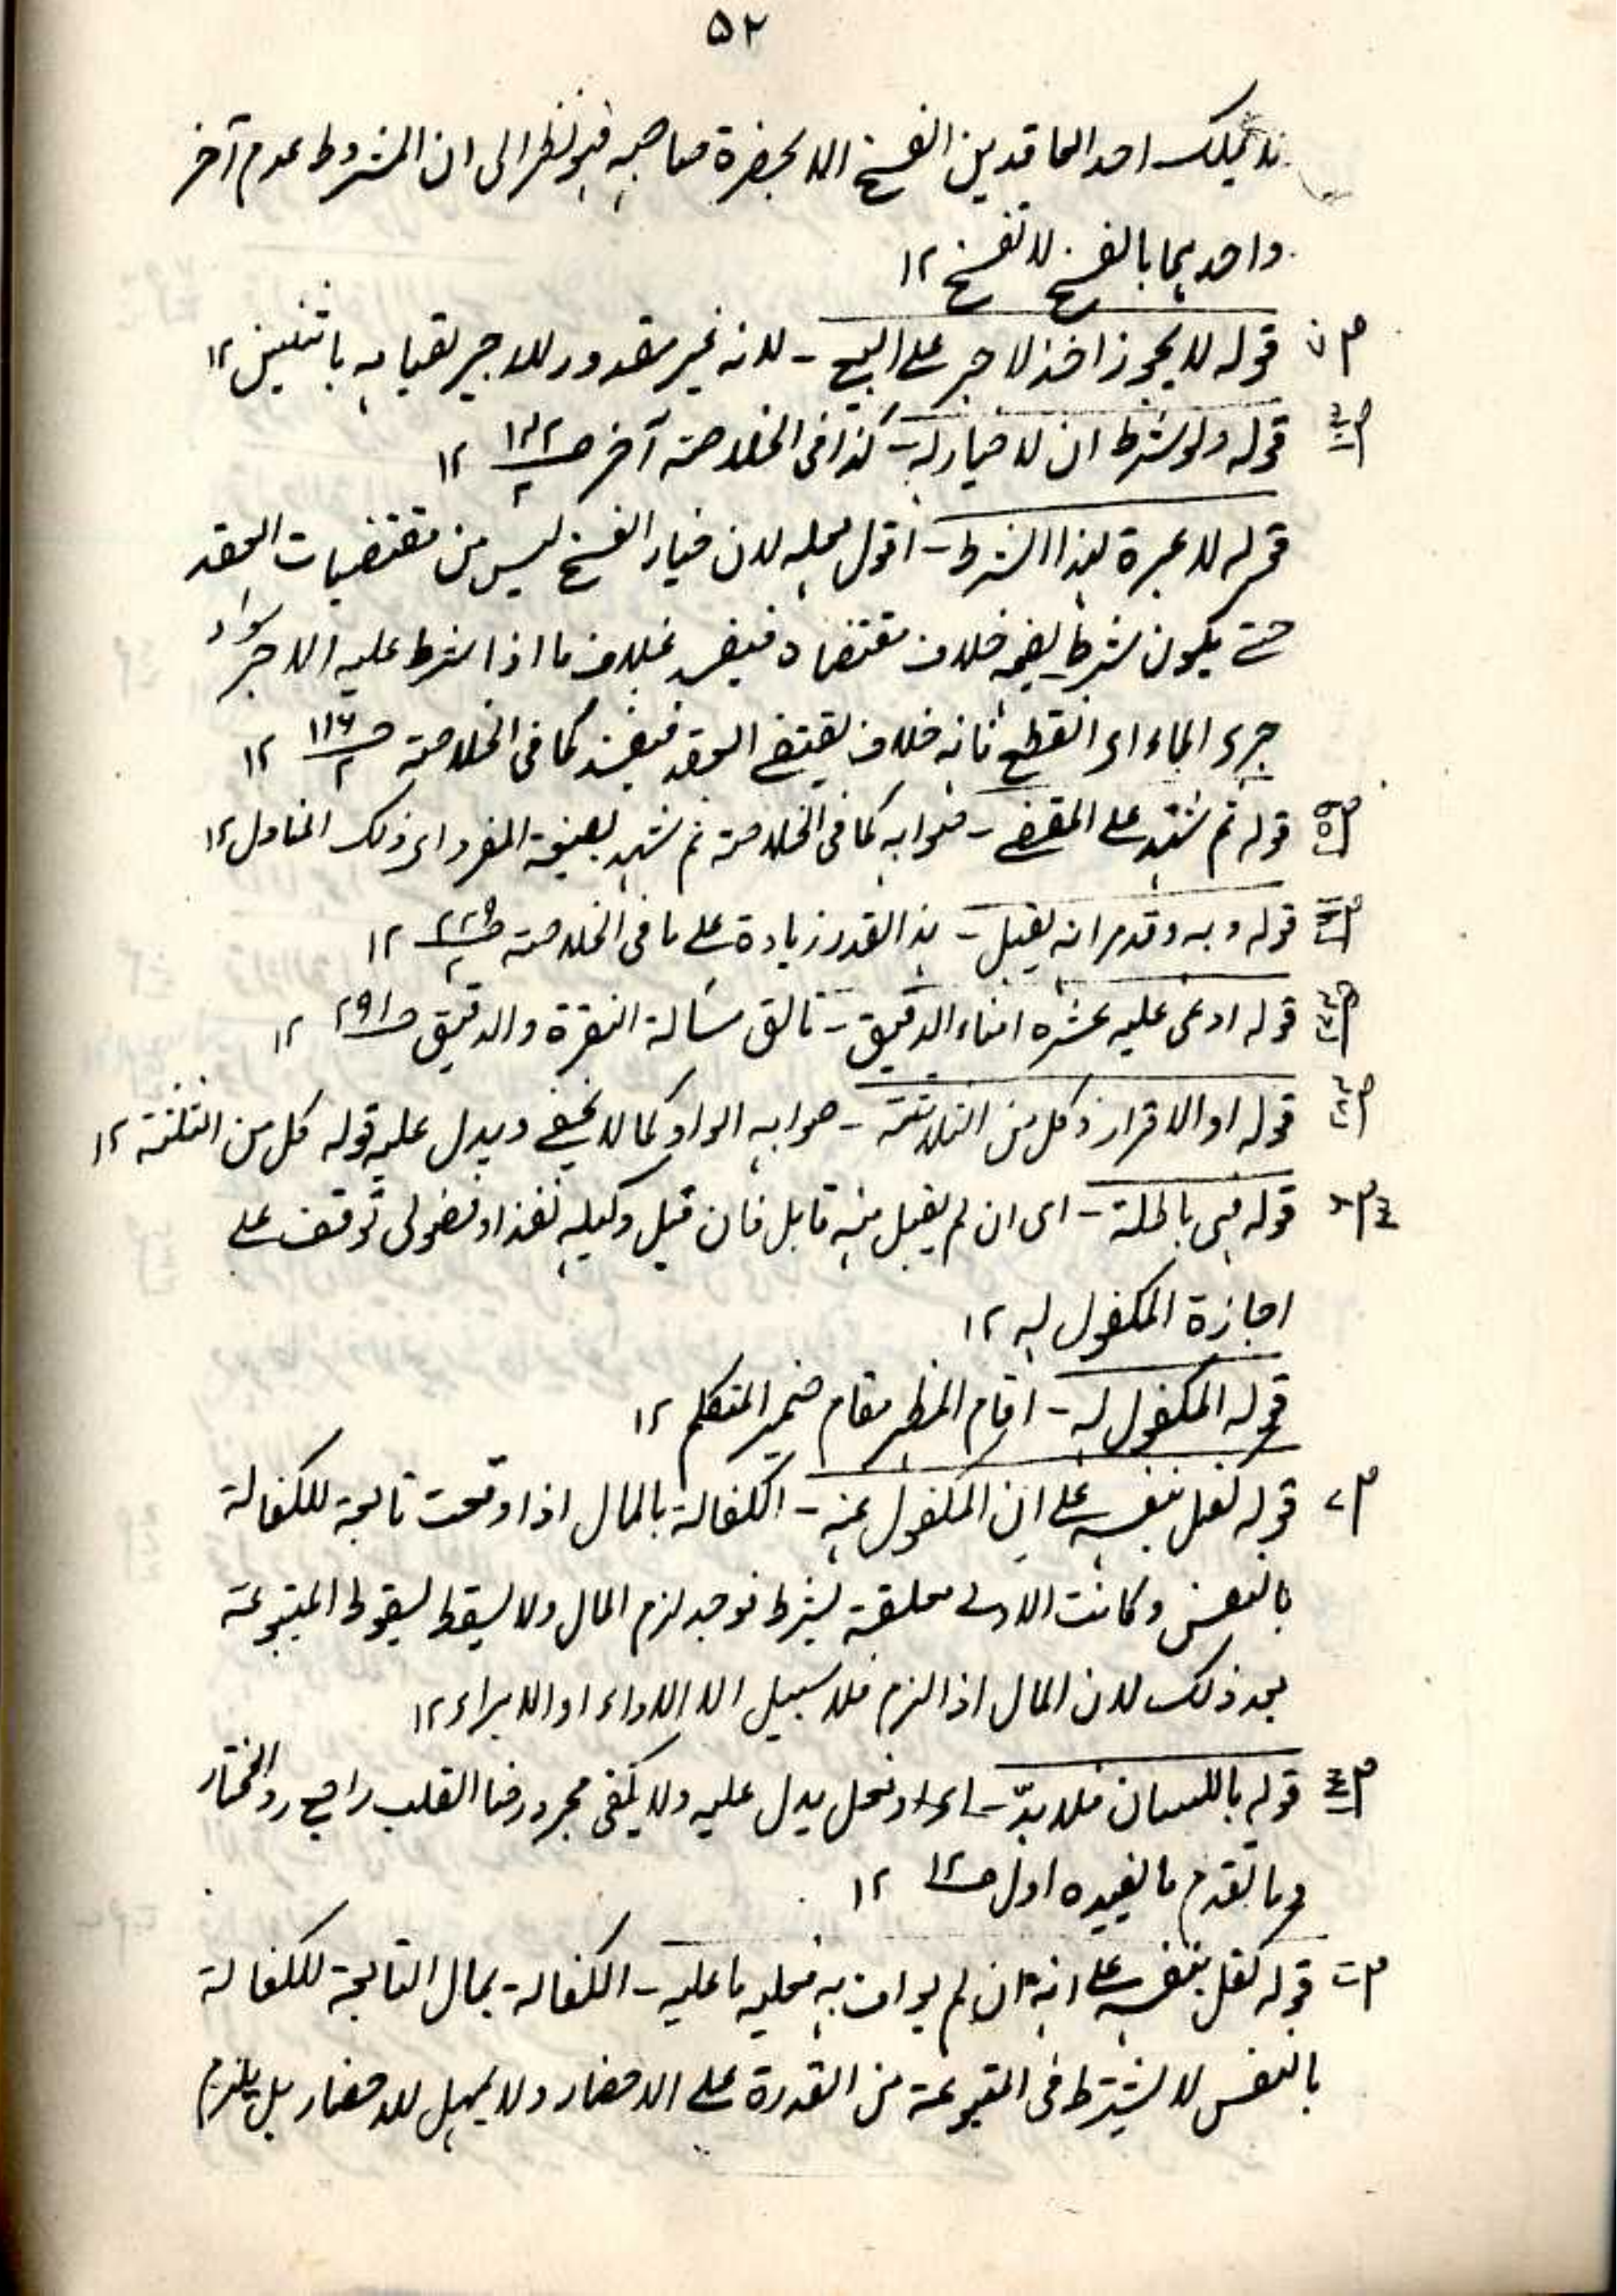 ۵۲
یملک احد العاقدین الفسخ الا بحضرة صاحبه فهو نظر الی ان المشروط عدم آخر
واحد بها بالفسخ لا تفسخ ۱۲
قوله لا یجوز اخذ لاجر علی البیع - لانه غیر مقدور للاجیر لقیامه باثنین ۱۲
قوله ولو شرط ان لا خیار له - کذا فی الخلاصة آخر ص ۱۳۲/۲ ۱۲
قوله لا عبرة لهذا الشرط - اقول محله لان خیار الفسخ لیس من مقتضیات العقد
حتی یکون شرط نفیه خلاف مقتضاه فیفسد بخلاف ما اذا شرط علیه الاجر سواء
جری الماء او انقطع فانه خلاف مقتضی العقد فیفسد کما فی الخلاصة ص ۱۱۶/۲ ۱۲
قوله ثم شهد علی المقضی - صوابه کما فی الخلاصة ثم شهد بصیغة المفرد ای ذلک المناول ۱۲
قوله وبه وقدمر انه یقبل - هذا القدر زیادة علی ما فی الخلاصة ص ۲۲۵/۲ ۱۲
قوله ادعی علیه عشره امناء الدقیق - مسألة النقرة والدقیق ص ۲۹۱ ۱۲
قوله او الاقرار وکل من الثلاثة - صوابه الواو کما لا یخفی ویدل علیه قوله کل من الثلثة ۱۲
قوله فهی باطلة - ای ان لم یقبل منه قابل فان قبل وکیله نفذ او فضولی توقف علی
اجازة المکفول له ۱۲
قوله المکفول له - اقام المظهر مقام ضمیر المتکلم ۱۲
قوله کفل بنفسه علی ان المکفول عنه - الکفالة بالمال اذا وقعت تابعة للکفالة
بالنفس وکانت الاولی معلقة بشرط فوجد لزم المال ولا یسقط بسقوط المتبوعة
بعد ذلک لان المال اذا لزم فلا سبیل الا الاداء او الابراء ۱۲
قوله باللسان فلا بدّ - او فعل یدل علیه ولا یکفی مجرد رضا القلب راجع رد المختار
وما تقدم ما یفیده اول ص ۱۲ ۱۲
قوله کفل بنفسه علی انه ان لم یواف به فعلیه ما علیه - الکفالة بمال التابعة للکفالة
بالنفس لا یشترط فی المتبوعة من القدرة علی الاحضار ولا یمهل للاحضار بل یلزم